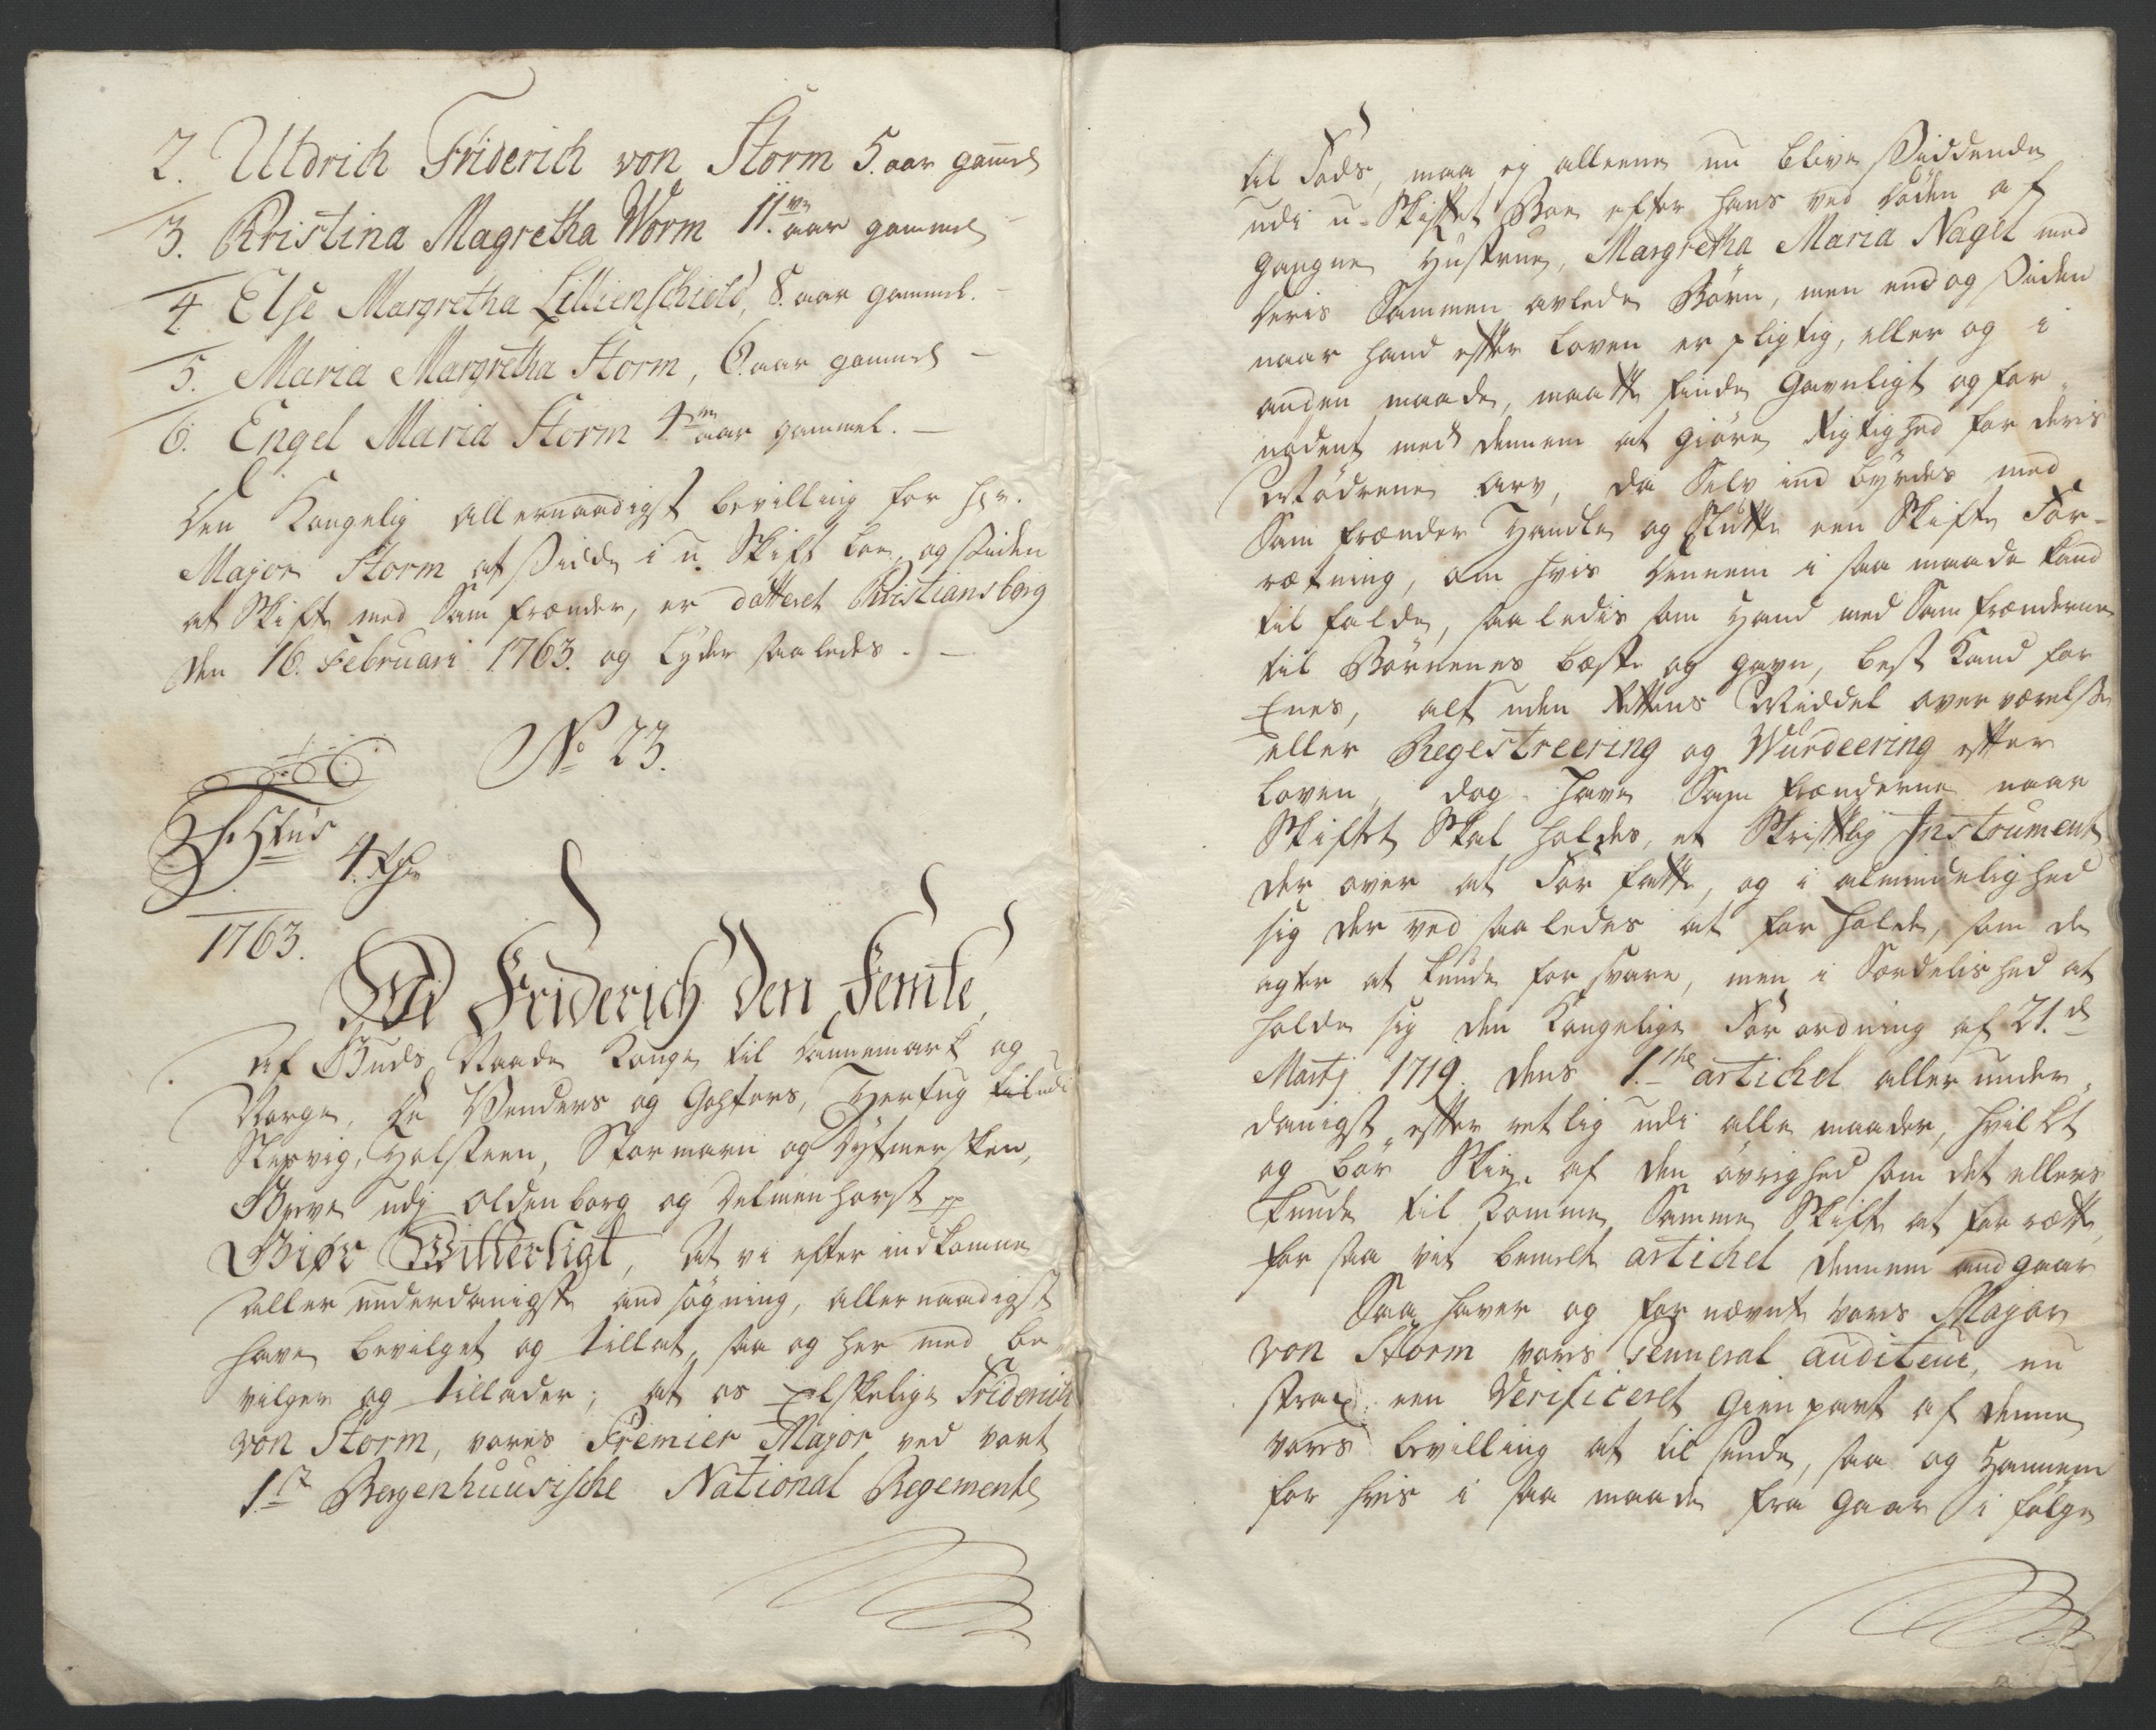 2. Uldrich Friderich von Storm 5. aar gamel
3. Kristina Magretha Worm 11.ve aar gammel
4. Else Margretha Lillienschiold, 8. aar gammel. –
5. Maria Margretha Storm, 6. aar gammel –
6. Engel Maria Storm 4.re aar gammel. –
Den Kongelig allernaadigst bevilling for hr.
Major Storm at sidde i u-Skift boe, og siden
at Skifte med Sam frænder, er datteret Christiansborg
den 16. Februari 1763. og lyder saaledes. –
No 23.
4. rdr
1763.
Wi Friderich den Femte
af Guds Naade Konge til Dannemark og
Norge, de Wenders og Gothers, Hertug udi
Slesvig, Holsteen, Stormarn og Dytmersken,
Greve udj Oldenborg og Delmenhorst pp
Giør Witterligt, At vi efter indkomne
aller underdanigste and søgning, aller naadigst
have bevilget og tillat, saa og her med be-
vilger og tillader; at os Elskelige Friderich
von Storm, vores Premier Major ved vort
1.st Bergenhuusiske National Regemente
til Fods, maa ej alleene nu blive siddende
udi u-Skiftet Boe efter hans ved døden af
gangne Hustrue, Margretha Maria Nagel med
deris Sammen avlede Børn, men endog siden
naar hand efter Loven er pligtig, eller og i
anden maade, maatte finde gavnligt og for-
nødent med dennem at giøre Rigtighed for deris
Mødrene Arv, da Selv ind byrdes med
Sam frænder Handle og Slutte een Skifte For-
retning, om hvis dennem i saa maade kand
til falde, saaledis som Hand med Samfrænderne
til Børnenes bæste og gavn, best Kand for
Enes, alt uden Rettens Middel overværelse
eller Regestreering og Wurdeering efter
Loven, dog have Sam frænderne naar
Skiftet Skal holdes, et Skriftlig Instrument
der over at For fatte, og i almindelighed
sig der ved saaledes at for holde, som de
agter at kunde for svare, men i Særdelished at
holde sig den Kongelige For ordning af 21.de
Martj 1719. dens 1.ste artichel aller under-
danigst efter retlig udi alle maader, hvilket
og bør Skee af den øvrighed som det ellers
kunde til komme Samme Skifte at for rette,
for saa vit bemelte artichel dennem andgaar
Saa haver og for nævnte vores Major
von Storm vores Genneral auditeur, nu
strax een Verificeret Gienpart af denne
vores bevilling at til sende, saa og Hannem
for hvis i saa maade fra gaar i følge